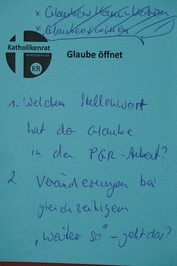 x Glauben
Glaubens
Katholikenrat
KR
Glaube öffnet
1. Welchen Stellenwert
hat der Glaube
in der PGR-Arbeit?
2. Veränderungen bei
gleichzeitigem
„weiter so" - geht das?